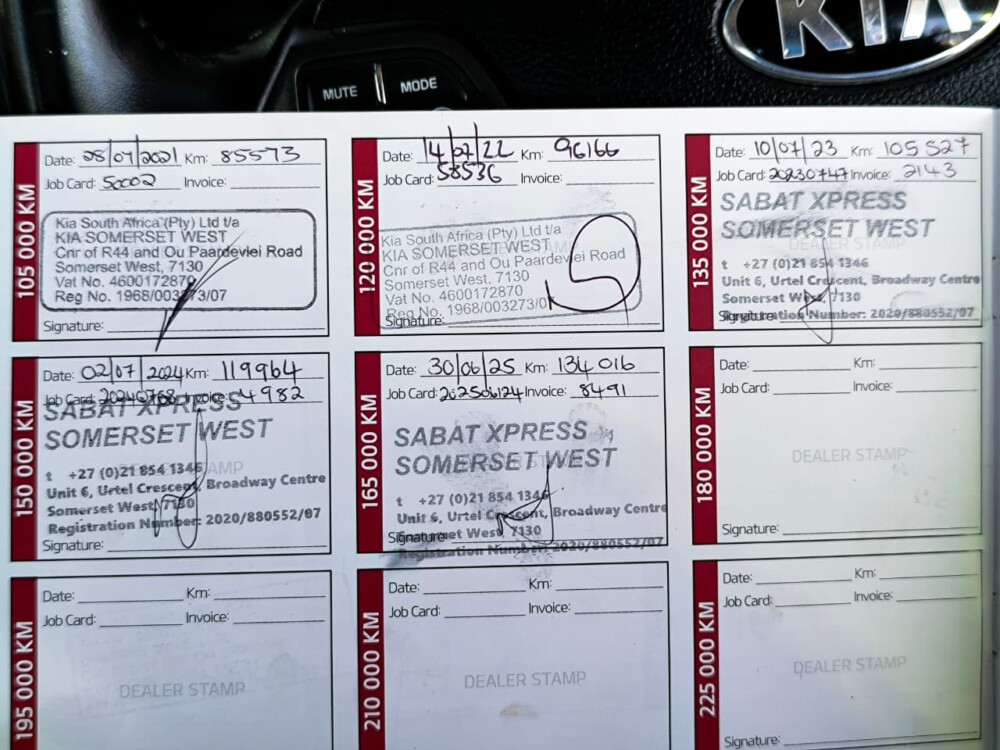 KIA
MUTE MODE
105 000 KM
Date: 28/07/2021 Km: 85573
Job Card: 50002 Invoice:
Kia South Africa (Pty) Ltd t/a
KIA SOMERSET WEST
Cnr of R44 and Ou Paardevlei Road
Somerset West, 7130
Vat No. 4600172870
Reg No. 1968/003273/07
Signature:
120 000 KM
Date: 14/07/22 Km: 96166
Job Card: 58536 Invoice:
Kia South Africa (Pty) Ltd t/a
KIA SOMERSET WEST
Cnr of R44 and Ou Paardevlei Road
Somerset West, 7130
Vat No. 4600172870
Reg No. 1968/003273/0
Signature:
135 000 KM
Date: 10/07/23 Km: 105527
Job Card: 20230747 Invoice: 2143
SABAT XPRESS
SOMERSET WEST
DEALER STAMP
t +27 (0)21 854 1346
Unit 6, Urtel Crescent, Broadway Centre
Somerset West, 7130
Registration Number: 2020/880552/07
Signature:
150 000 KM
Date: 02/07/2024 Km: 119964
Job Card: 20240768 Invoice: 4982
SABAT XPRESS
SOMERSET WEST
STAMP
t +27 (0)21 854 1346
Unit 6, Urtel Crescent, Broadway Centre
Somerset West, 7130
Registration Number: 2020/880552/07
Signature:
165 000 KM
Date: 30/06/25 Km: 134016
Job Card: 202506124 Invoice: 8491
SABAT XPRESS
SOMERSET WEST
t +27 (0)21 854 1346
Unit 6, Urtel Crescent, Broadway Centre
Somerset West, 7130
Signature:
Registration Number: 2020/880552/07
180 000 KM
Date: Km:
Job Card: Invoice:
DEALER STAMP
Signature:
195 000 KM
Date: Km:
Job Card: Invoice:
DEALER STAMP
210 000 KM
Date: Km:
Job Card: Invoice:
DEALER STAMP
225 000 KM
Date: Km:
Job Card: Invoice:
DEALER STAMP
Signature: